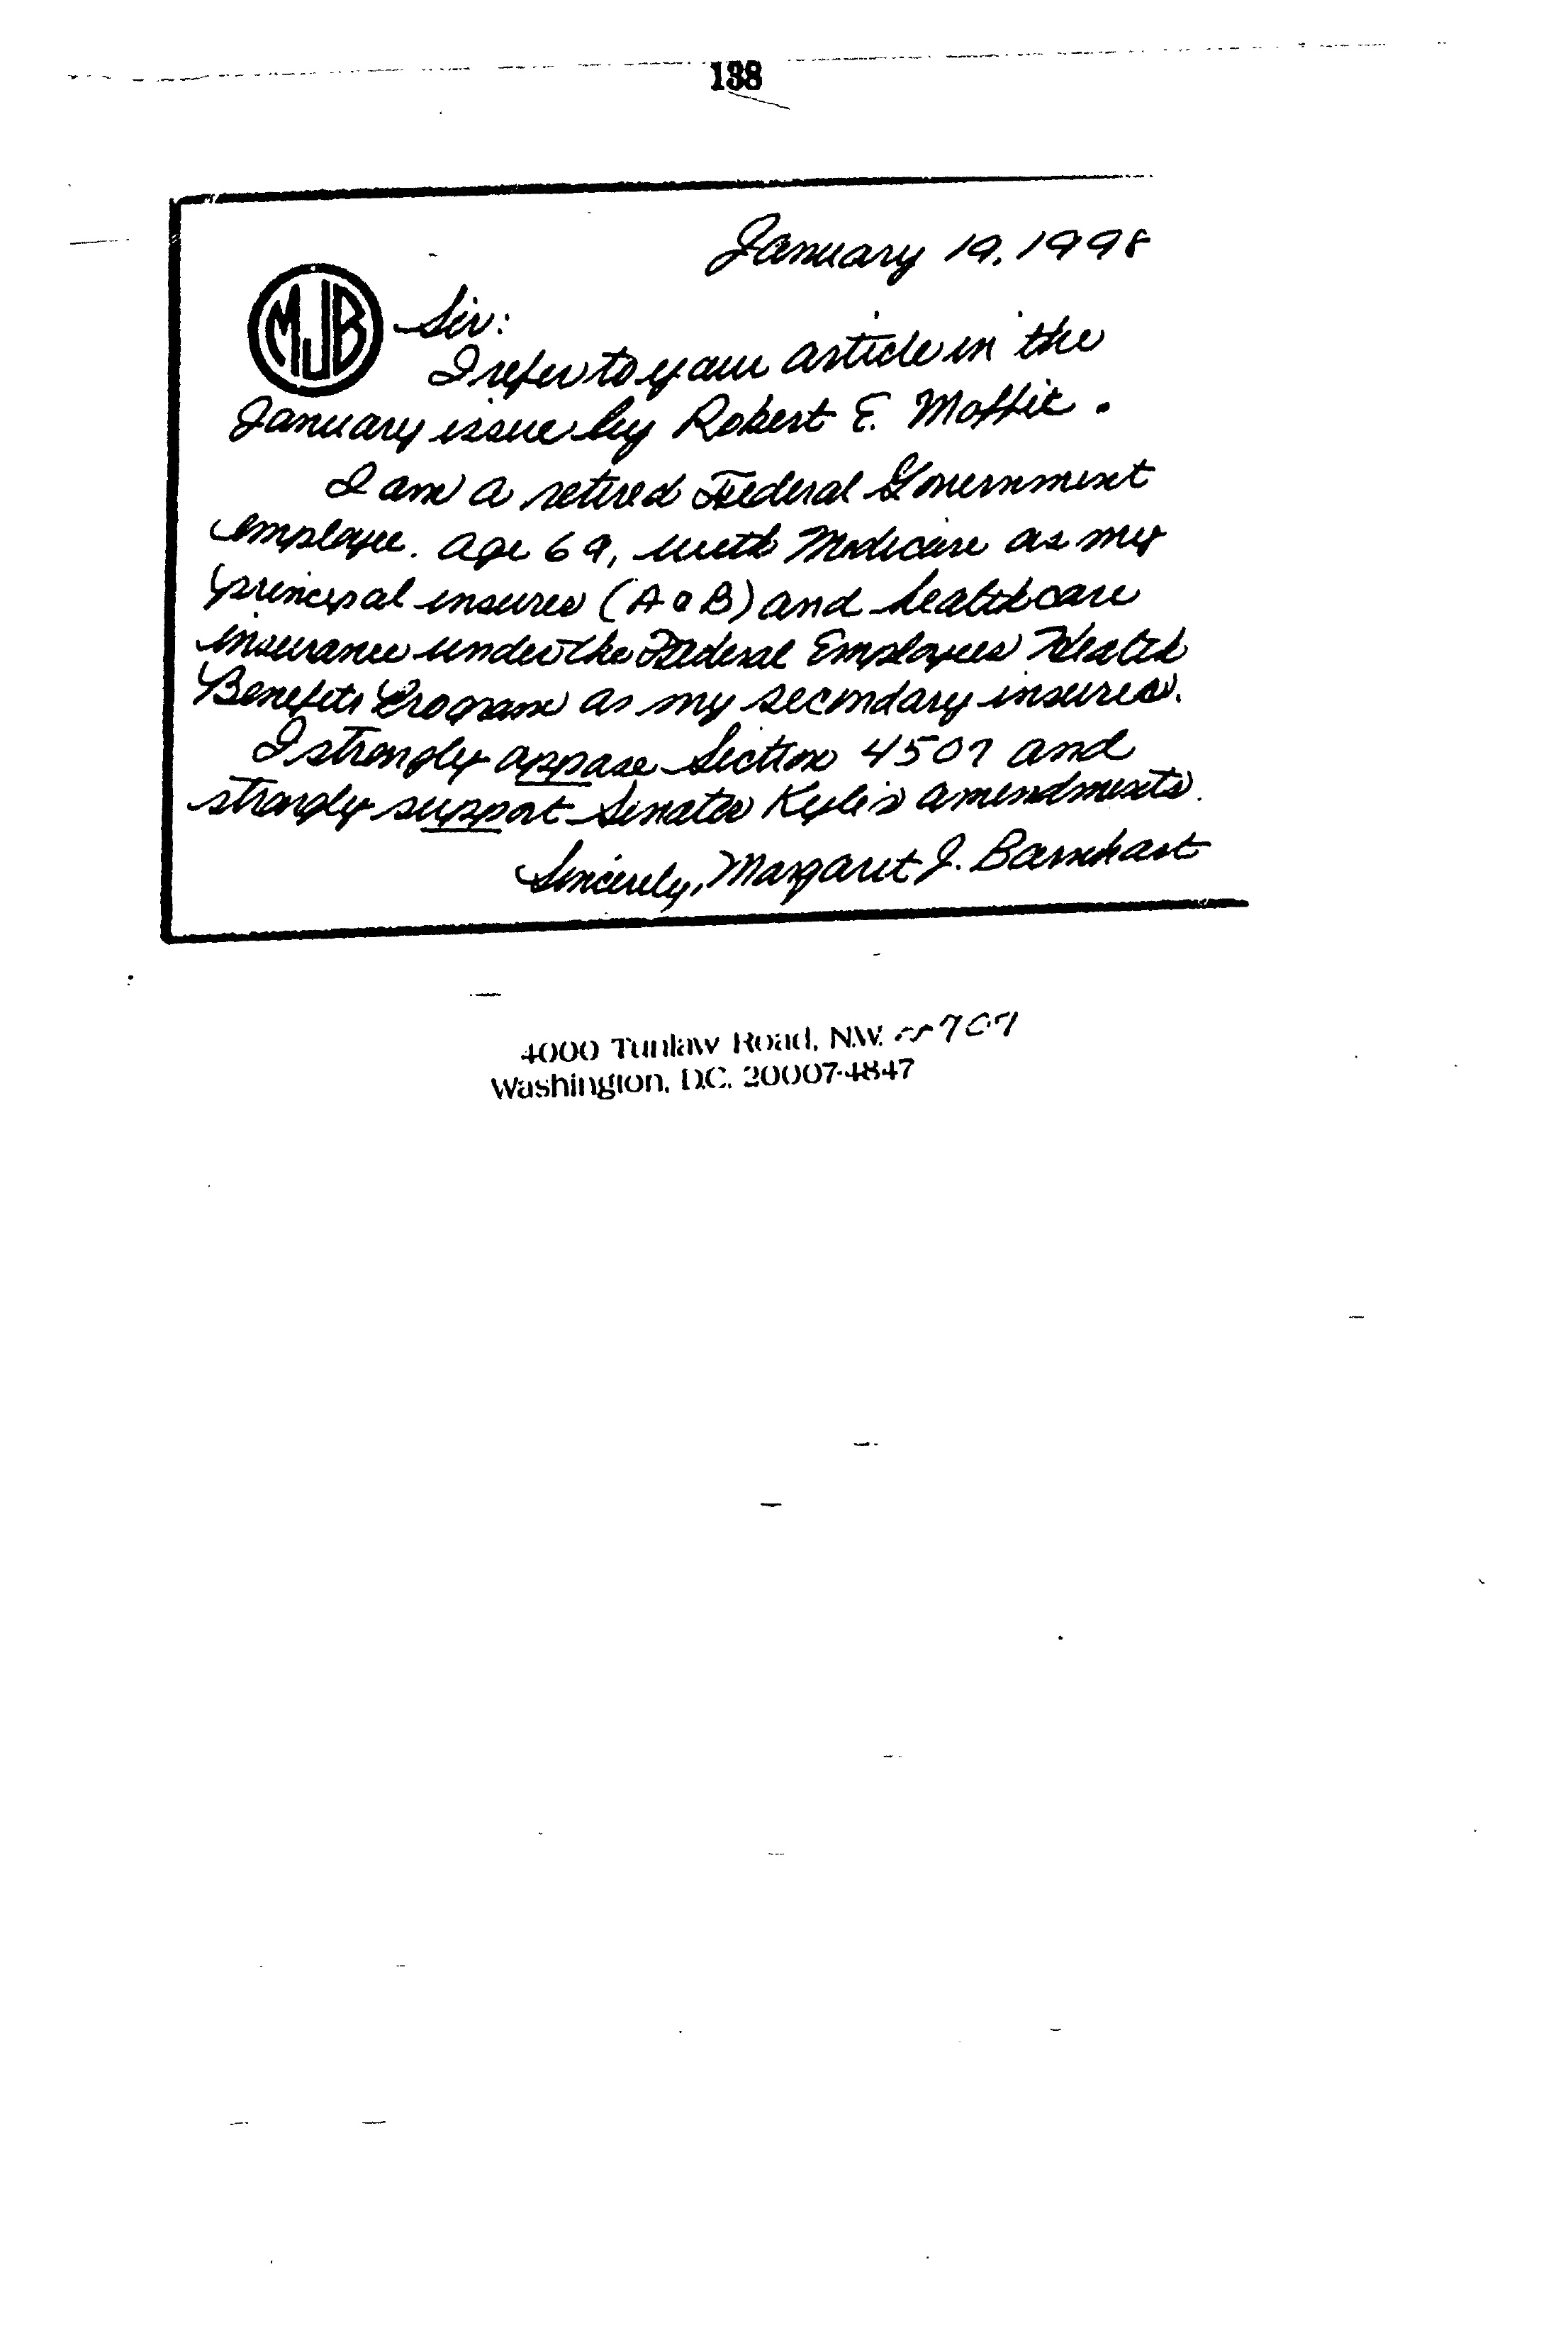 138
January 19, 1998
MJB
Sir:
I refer to your article in the
January issue by Robert E. Moffit.
I am a retired Federal Government
employee. age 69, with Medicare as my
principal insurer (A & B) and healthcare
insurance under the Federal Employees Health
Benefits Program as my secondary insurer.
I strongly oppose Section 4507 and
strongly support Senator Kyl's amendments.
Sincerely, Margaret J. Barnhart
4000 Tunlaw Road, N.W. 707
Washington, D.C. 20007-4847